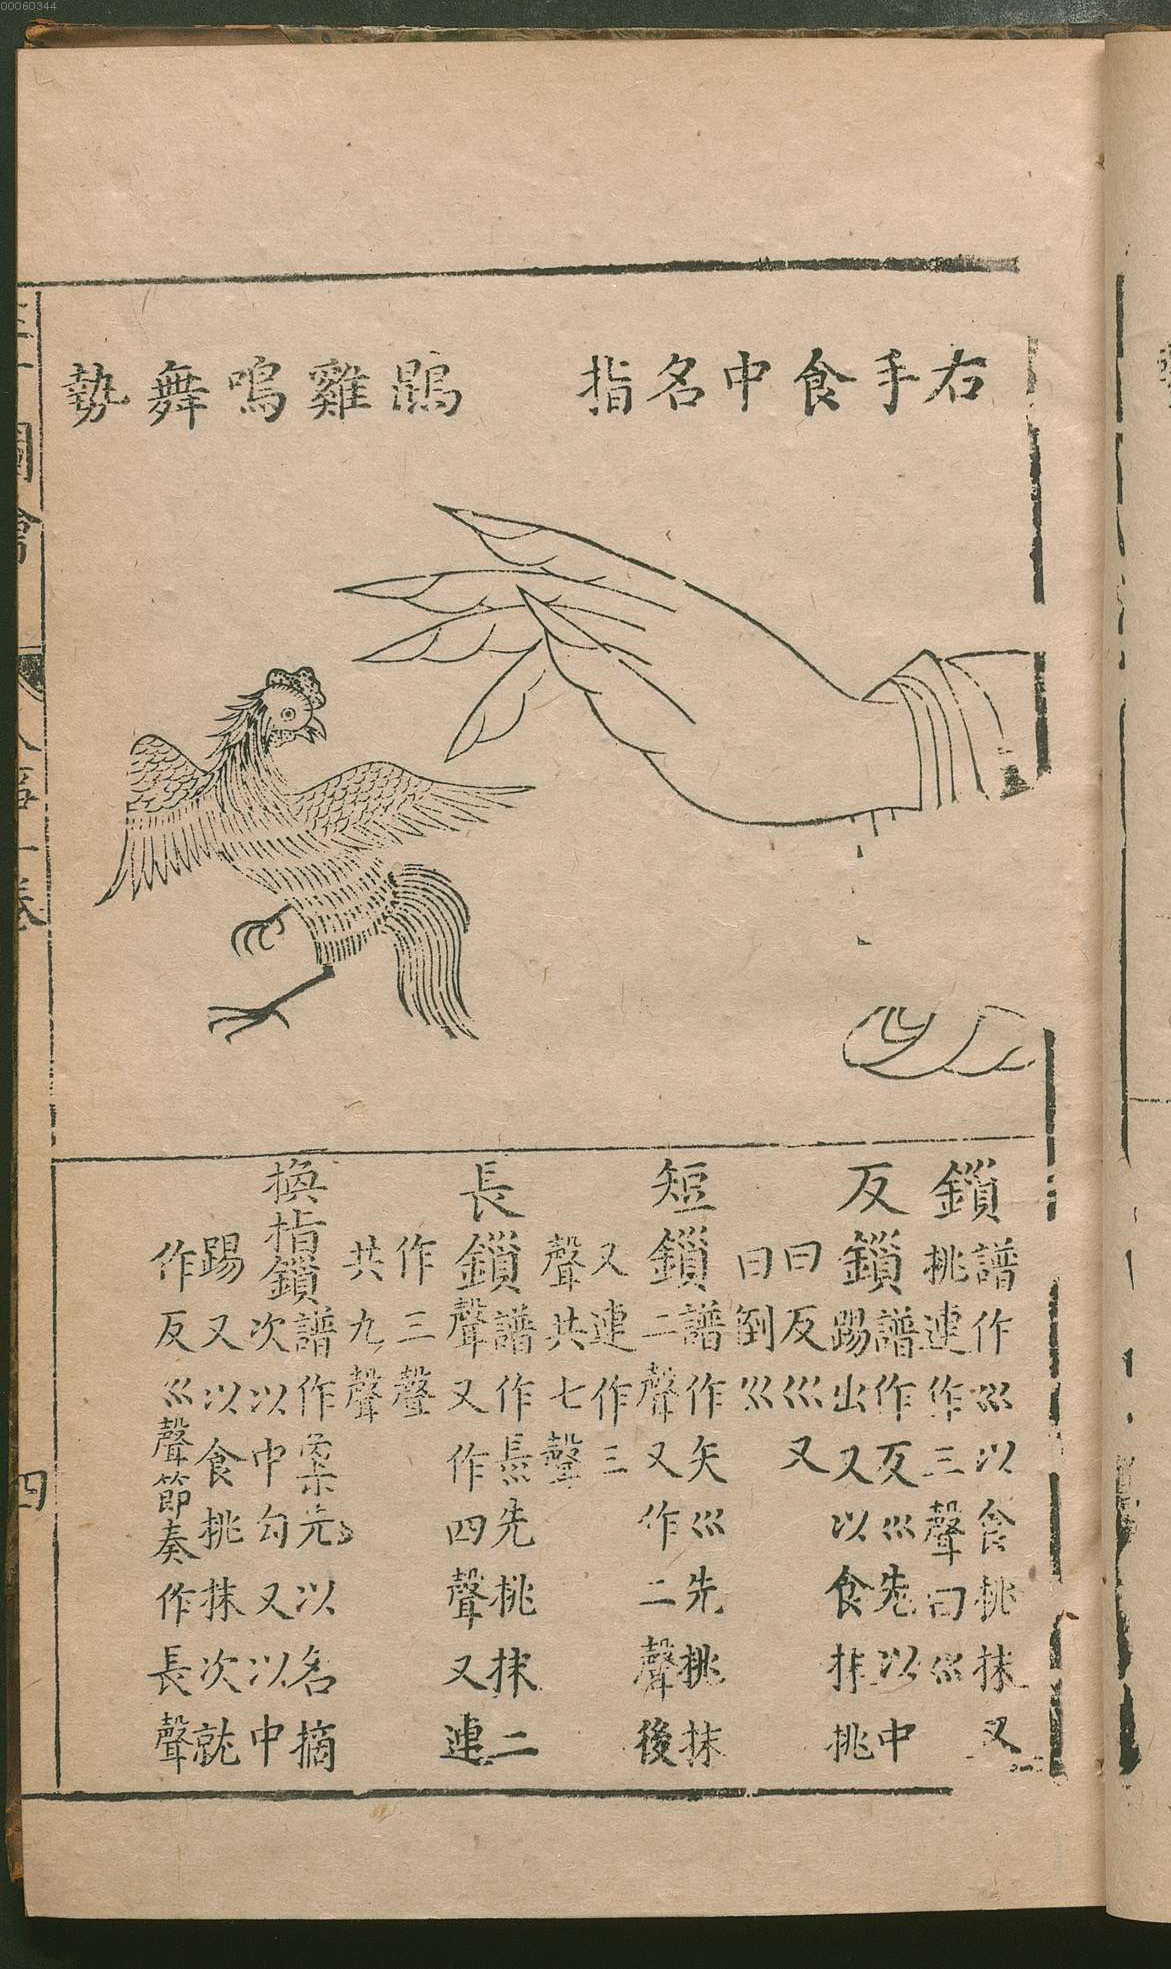 00060344
右手食中名指
鵾雞鳴舞勢
鎖
譜作巛以食挑抹又
挑連作三聲曰巛
反鎖
譜作反巛先以中
踢出又以食抹挑
曰反巛又
曰倒巛
短鎖
譜作矢巛先挑抹
二聲又作二聲後
又連作三
聲共七聲
長鎖
譜作镸先挑抹二
聲又作四聲又連
作三聲
共九聲
換指鎖
譜作先以名摘
次以中勾又以中
踢又以食挑抹次就
作反巛聲節奏作長聲
三才圖會
人事一卷
四